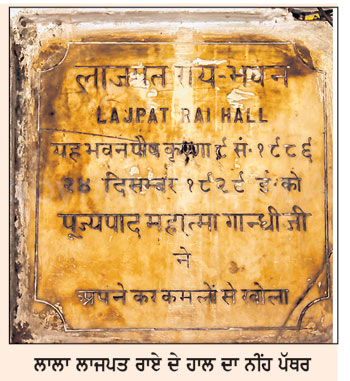 लाजपत राय-भवन
LAJPAT RAI HALL
यह भवन पौष कृष्णा ८ सं॰ १९८६
२४ दिसम्बर १९२९ ई॰ को
पूज्यपाद महात्मा गान्धी जी
ने
अपने कर कमलों से खोला
ਲਾਲਾ ਲਾਜਪਤ ਰਾਏ ਦੇ ਹਾਲ ਦਾ ਨੀਂਹ ਪੱਥਰ